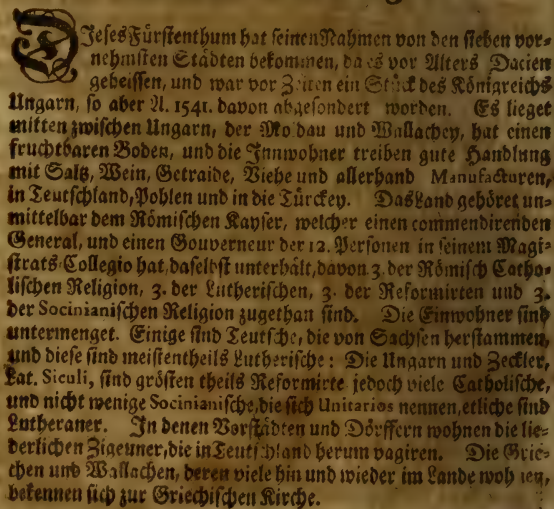 Dieses Fürstenthum hat seinen Nahmen von den sieben vor-
nehmsten Städten bekommen, da es vor Alters Dacien
geheissen, und war vor Zeiten ein Stück des Königreichs
Ungarn, so aber A. 1541. davon abgesondert worden. Es lieget
mitten zwischen Ungarn, der Moldau und Wallachey, hat einen
fruchtbaren Boden, und die Innwohner treiben gute Handlung
mit Saltz, Wein, Getraide, Viehe und allerhand Manufacturen,
in Teutschland, Pohlen und in die Türckey. Das Land gehöret un-
mittelbar dem Römischen Kayser, welcher einen commendirenden
General, und einen Gouverneur der 12. Personen in seinem Magi-
strats-Collegio hat, daselbst unterhält, davon 3. der Römisch Catho-
lischen Religion, 3. der Lutherischen, 3. der Reformirten und 3.
der Socinianischen Religion zugethan sind. Die Einwohner sind
untermenget. Einige sind Teutsche, die von Sachsen herstammen,
und diese sind meistentheils Lutherische: Die Ungarn und Zeckler,
Lat. Siculi, sind grösten theils Reformirte jedoch viele Catholische,
und nicht wenige Socinianische, die sich Unitarios nennen, etliche sind
Lutheraner. In denen Vorstädten und Dörffern wohnen die lie-
derlichen Zigeuner, die in Teutschland herum vagiren. Die Grie-
chen und Wallachen, deren viele hin und wieder im Lande wohnen,
bekennen sich zur Griechischen Kirche.